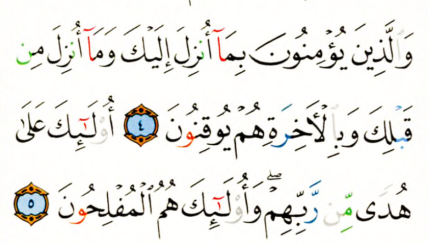 وَالَّذِينَ يُؤْمِنُونَ بِمَآ أُنزِلَ إِلَيْكَ وَمَآ أُنزِلَ مِن
قَبْلِكَ وَبِالْأَخِرَةِ هُمْ يُوقِنُونَ ٤ أُوْلَٰٓئِكَ عَلَىٰ
هُدًى مِّن رَّبِّهِمْ ۖ وَأُوْلَٰٓئِكَ هُمُ الْمُفْلِحُونَ ٥